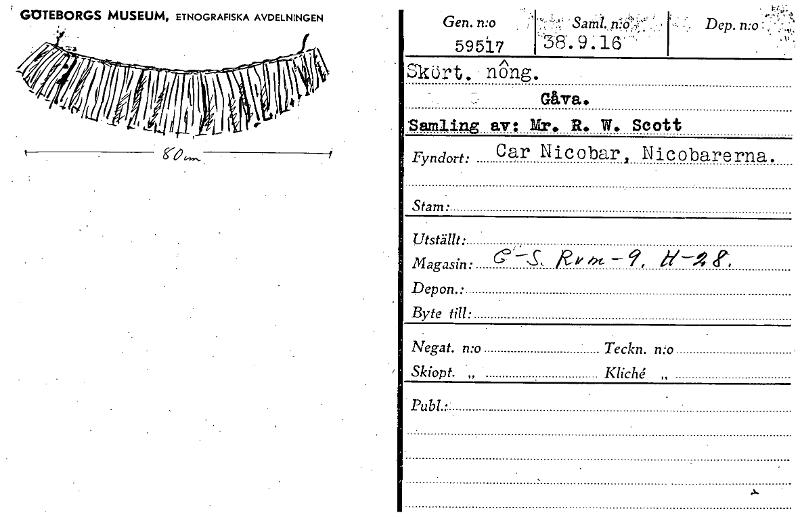 GÖTEBORGS MUSEUM, ETNOGRAFISKA AVDELNINGEN
80 cm
Gen. n:o Saml. n:o Dep. n:o
59517 38.9.16
Skört. nông.
Gåva.
Samling av: Mr. R. W. Scott
Fyndort: Car Nicobar, Nicobarerna.
Stam:
Utställt:
Magasin: G-S. Rum-9. H-28.
Depon.:
Byte till:
Negat. n:o Teckn. n:o
Skiopt. „ Kliché „
Publ.: